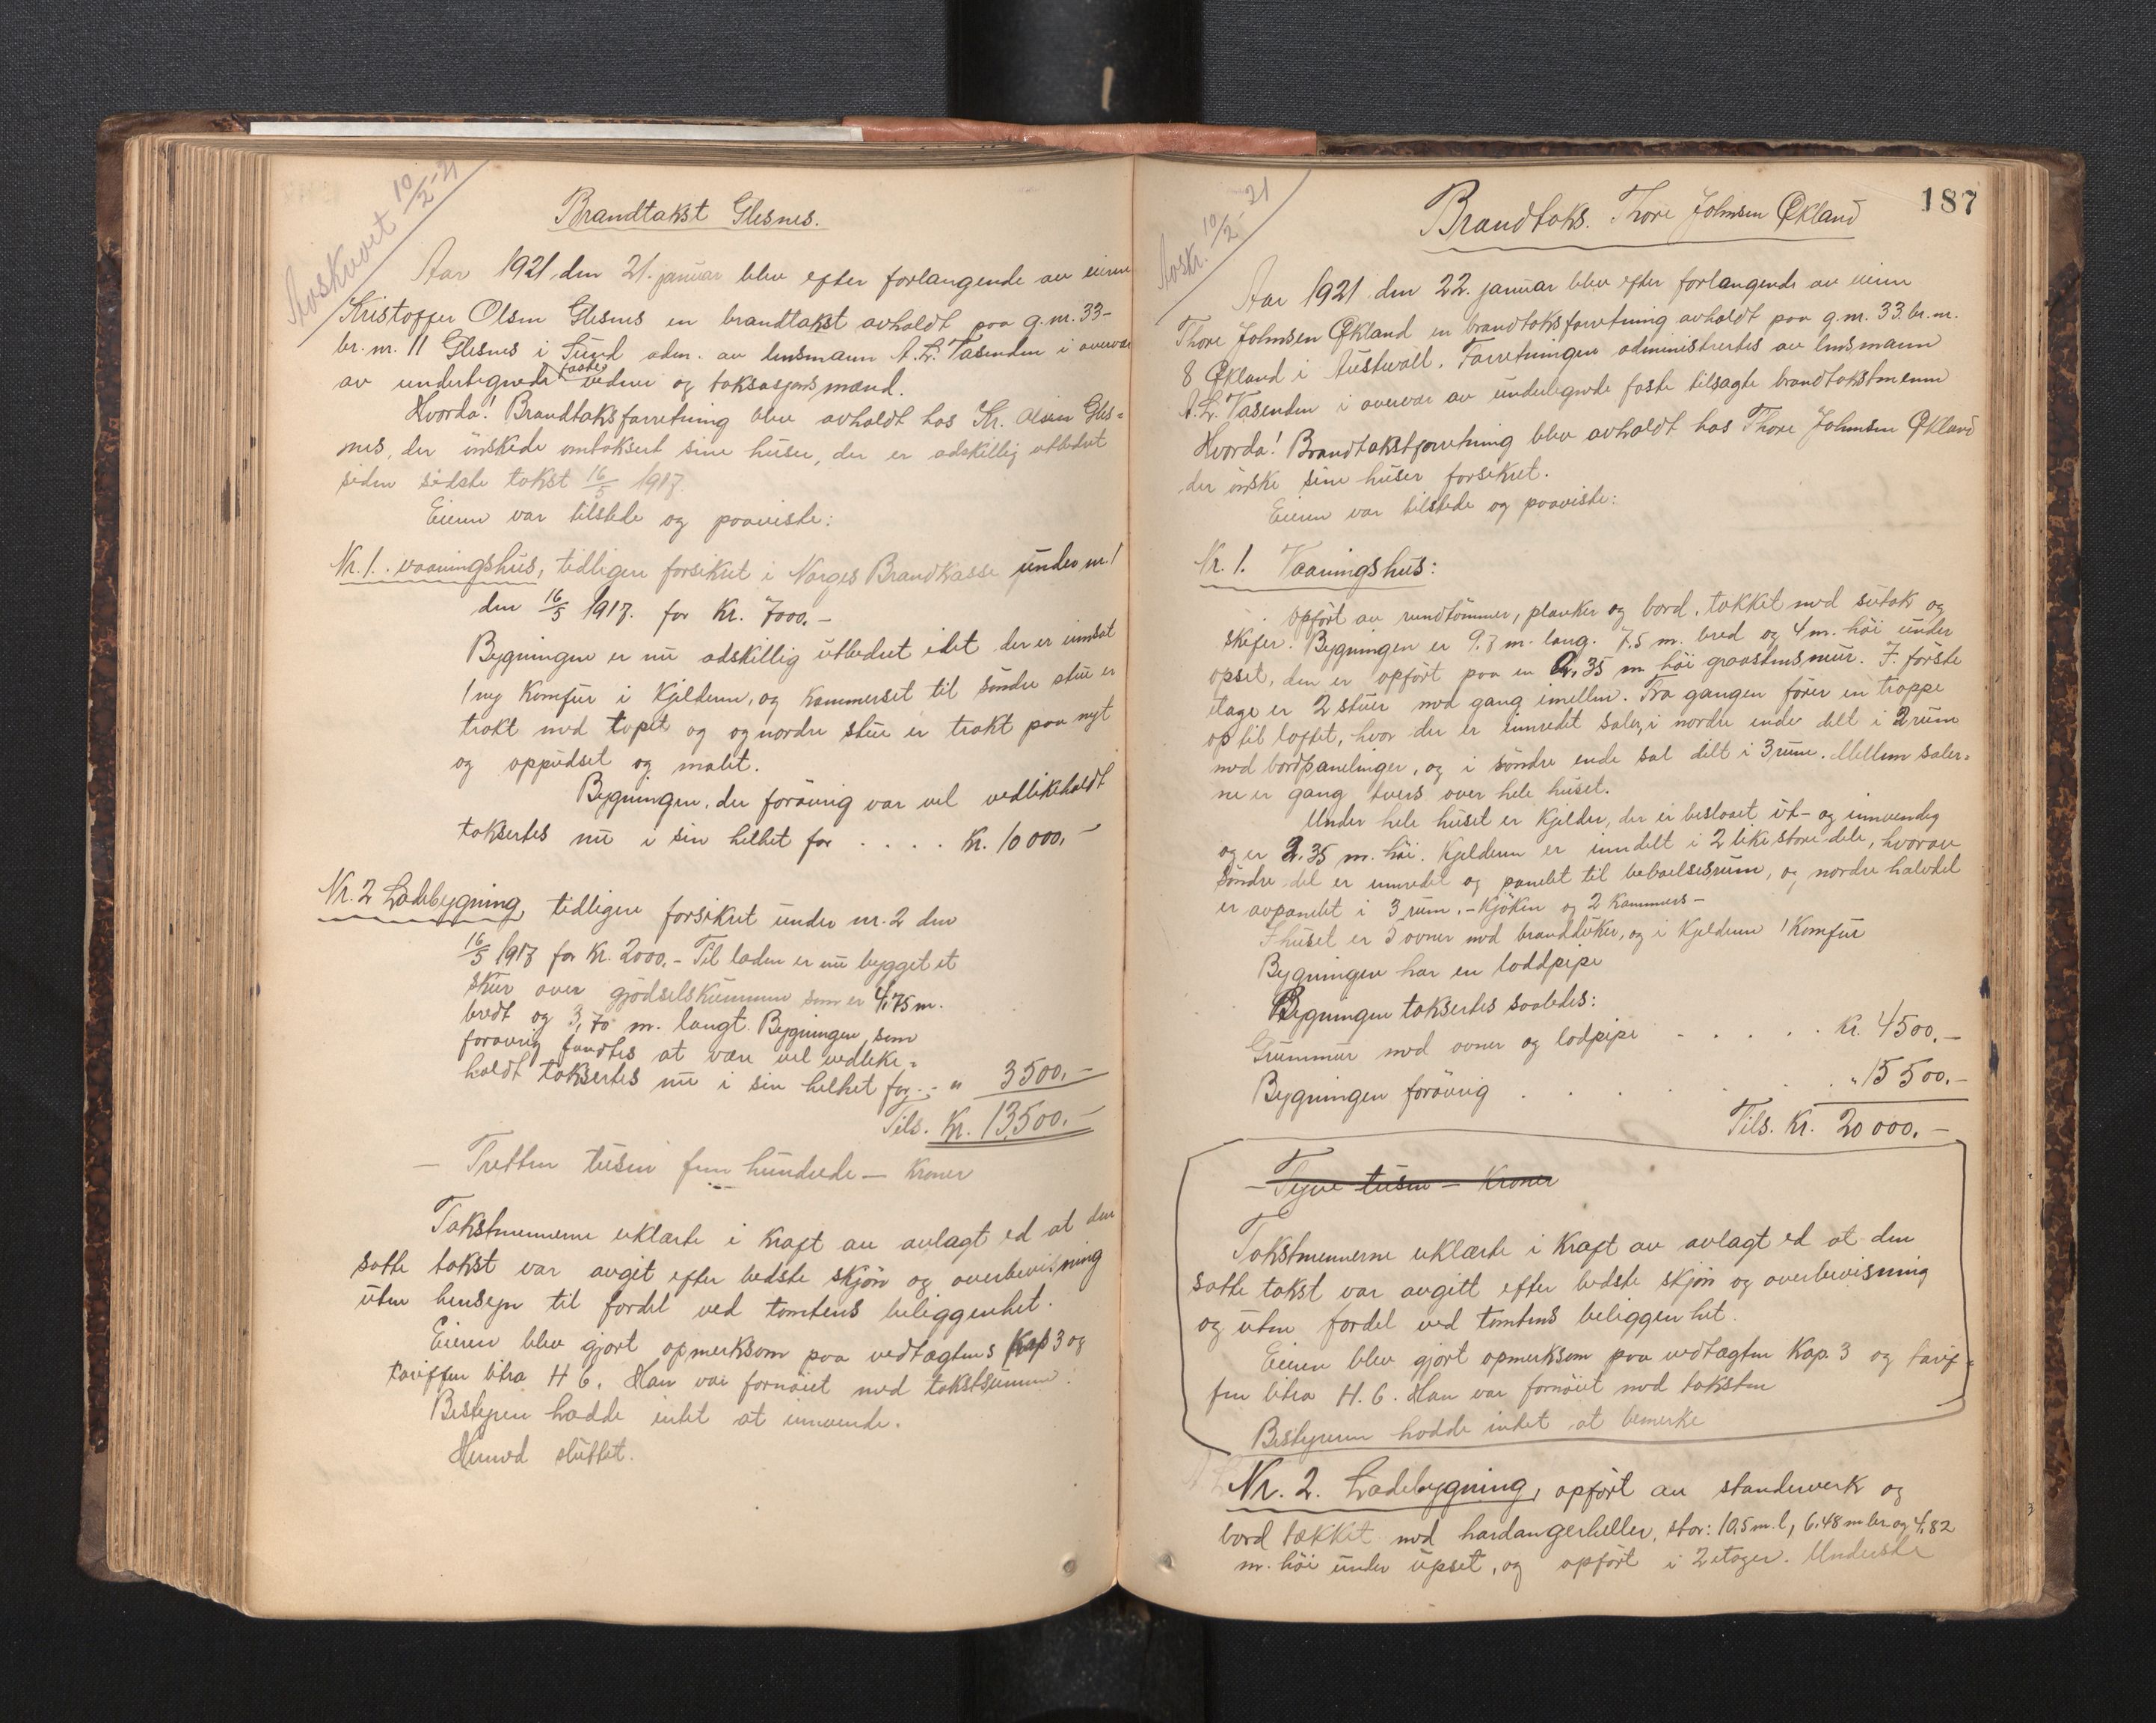 Avskrevet 10/2-21
Brandtakst Glesnes.
Aar 1921, den 21. januar blev efter forlangende av eieren
Kristoffer Olsen Glesnes en brandtakst avholdt paa g.nr. 33-
br.nr. 11 Glesnes i Sund adm. av lensmann A.L. Tasenden i overvær
av undertegnede faste vedner og taksasjonsmænd.
Hvorda! Brandtaksforretning blev avholdt hos Kr. Olsen Gles=
nes, der ønskede omtaksert sine huser, der er adskillig utbedret
siden sidste takst 16/5 1917.
Eieren var tilstede og paaviste:
Nr. 1. vaaningshus, tidligere forsikret i Norges Brandkasse under nr. 1
den 16/5 1917. for Kr. 7000.-
Bygningen er nu adskillig utbedret idet der er innsat
1 ny Komfur i Kjelderen, og Kammerset til søndre stue er
trakt med tapet og og nordre stue er trakt paa nyt
og oppudset og malet.
Bygningen, der forøvrig var vel vedlikeholdt
taksertes nu i sin helhet for . . . . Kr. 10 000.-
Nr. 2 Ladebygning, tidligere forsikret under nr. 2 den
16/5 1917 for Kr. 2000.- Til laden er nu bygget et
skur over gjødselskummen som er 4,75 m.
bredt og 3,70 m. langt. Bygningen, som
forøvrig fandtes at være vel vedlike=
holdt taksertes nu i sin helhet for . - " 3500.-
Tils. Kr. 13,500.-
- Tretten tusen fem hundrede - Kroner
Takstmennerne erklærte i Kraft av avlagt ed at den
satte takst var avgit efter bedste skjøn og overbevisning
uten hensyn til fordel ved tomtens beliggenhet.
Eieren blev gjort opmerksom paa vedtægtens Kap 3 og
tariffen litra H 6. Han var fornøiet med takstsummen.
Bestyren hadde intet at innvende.
Hermed sluttet.
187
Avskr. 10/2-21
Brandtaks. Thore Johnsen Økland
Aar 1921 den 22. januar blev efter forlangende av eieren
Thore Johnsen Økland en brandtaksforretning avholdt paa g.nr. 33. br.nr.
8 Økland i Austevoll. Forretningen administrertes av lensmann
A.L. Tasenden i overvær av undertegnede faste tilsagte brandtakstmenn
Hvorda! Brandtakstforretning blev avholdt hos Thore Johnsen Økland
der ønske sine huser forsikret.
Eieren var tilstede og paaviste:
Nr. 1. Vaaningshus:
opført av rundtømmer, planker og bord, takket med sutak og
skifer. Bygningen er 9.7 m. lang. 7.5 m. bred og 4 m. høi under
opset, den er opført paa en 2,35 m høi graastensmur. I første
etage er 2 stuer med gang imellem. Fra gangen fører en trappe
op til loftet, hvor der er innredet saler, i nordre ende delt i 2 rum
med bordpanelinger, og i søndre ende sal delt i 3 rum. Mellem saler=
ne er gang tvers over hele huset.
Under hele huset er Kjelder, der er beslaaet ut- og innvendig
og er 2.35 m. høi. Kjelderen er inndelt i 2 like store dele, hvorav
søndre del er innredet og panelet til beboelsesrum, og nordre halvdel
er avpanelet i 3 rum. - Kjøken og 2 Kammers -
I huset er 3 ovner med branddøker, og i Kjelderen 1 Komfur
Bygningen har en loddpipe
Bygningen taksertes saaledes:
Grunnmur med ovner og lodpipe - . . . . Kr. 4500.-
Bygningen forøvrig . . . . . " 15 500.-
Tils. Kr. 20 000.-
- Tyve tusen - Kroner
Takstmennerne erklærte i Kraft av avlagt ed at den
satte takst var avgitt efter bedste skjøn og overbevisning
og uten fordel ved tomtens beliggenhet.
Eieren blev gjort opmerksom paa vedtægten Kap. 3 og tarif=
fen litra H. 6. Han var fornøiet med taksten
Bestyreren hadde intet at bemerke
Nr. 2. Ladebygning, opført av standerverk og
bord tækket med hardangerheller, stor: 10,5 m. l, 6,48 m br. og 4,82
m. høi under upset, og opført i 2 etager. Underste